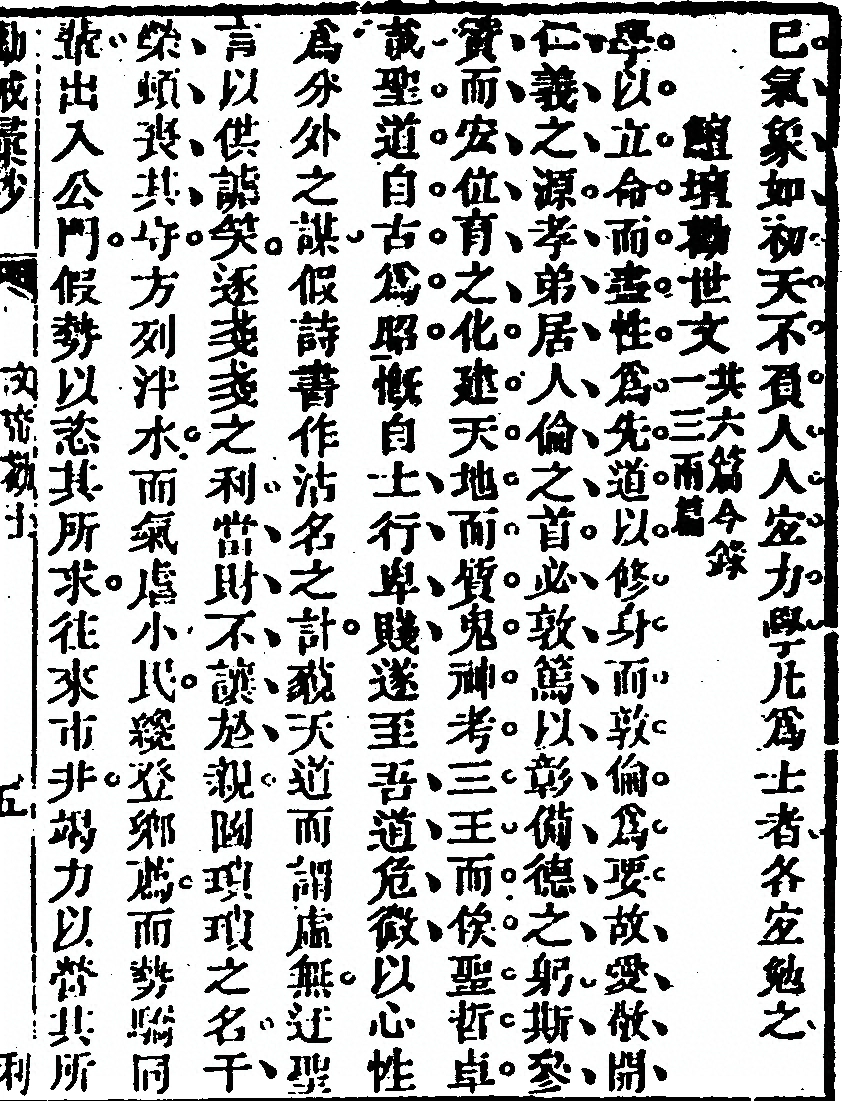 已氣象如初天不負人人宜力學凡爲士者各宜勉之
鱣壇勸世文共六篇今錄一三兩篇
學以立命而盡性爲先道以修身而敦倫爲要故愛敬開
仁義之源孝弟居人倫之首必敦篤以彰備德之躬斯參
贊而宏位育之化建天地而質鬼神考三王而俟聖哲卓
哉聖道自古爲昭慨自士行卑賤遂至吾道危微以心性
爲分外之謀假詩書作沽名之計藐天道而謂虛無迂聖
言以供諧笑逐戔戔之利當財不讓於親圖瑣瑣之名干
榮頓喪其守方列泮水而氣虐小民纔登鄉薦而勢驕同
輩出入公門假勢以恣其所求往來市井竭力以營其所
勸戒彙鈔 文帝勸士 五 利